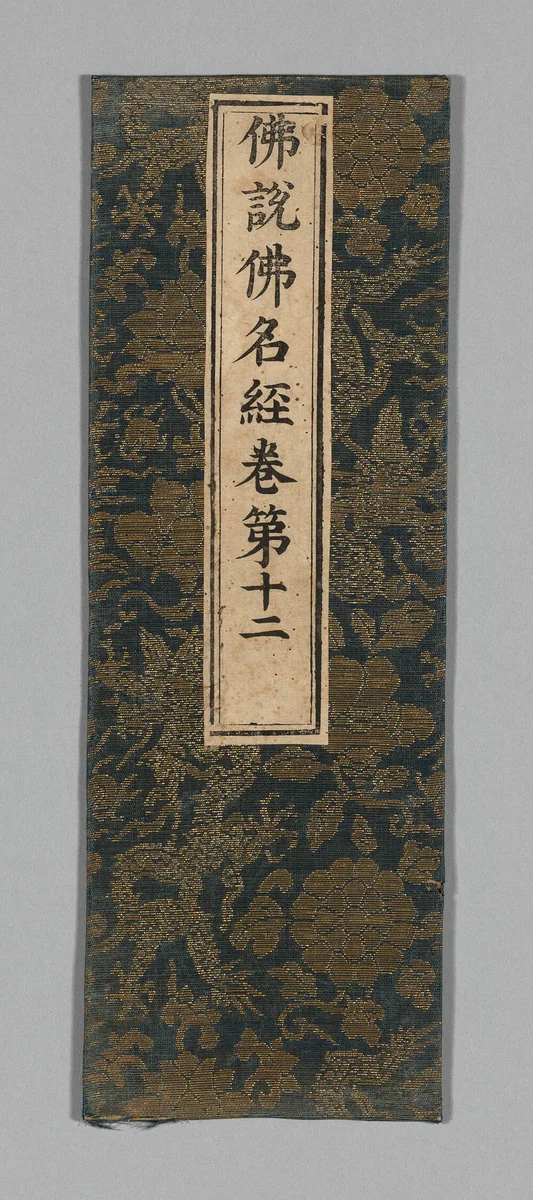 佛說佛名經卷第十二